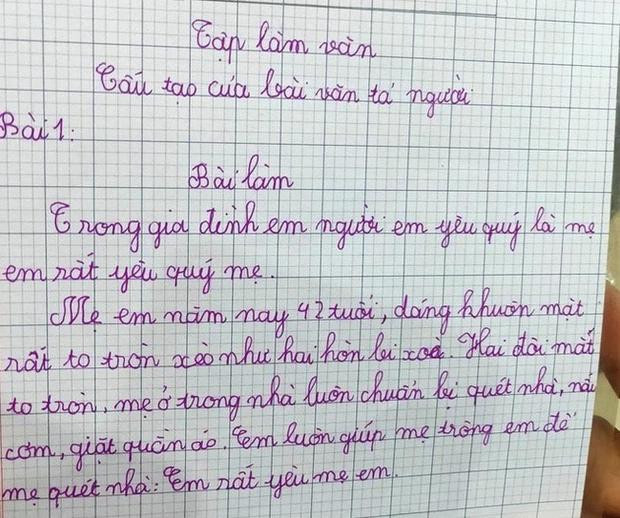 Tập làm văn
Cấu tạo của bài văn tả người
Bài 1:
Bài làm
Trong gia đình em người em yêu quý là mẹ
em rất yêu quý mẹ.
Mẹ em năm nay 42 tuổi, dáng khuôn mặt
rất to tròn xèo như hai hòn bi xoà. Hai đôi mắt
to tròn, mẹ ở trong nhà luôn chuẩn bị quét nhà, nấu
cơm, giặt quần áo. Em luôn giúp mẹ trông em để
mẹ quét nhà: Em rất yêu mẹ em.